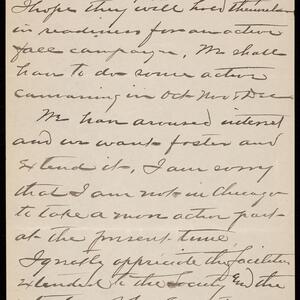 I hope they will hold themselves
in readiness for an active
fall campaign, We shall
have to do some active
canvassing in Oct Nov & Dec
We have aroused interest
and we want foster and
extend it, I am sorry
that I am not in Chicago
to take a more active part
at the present time,
I greatly appreciate the facilities
extended to the Society and the